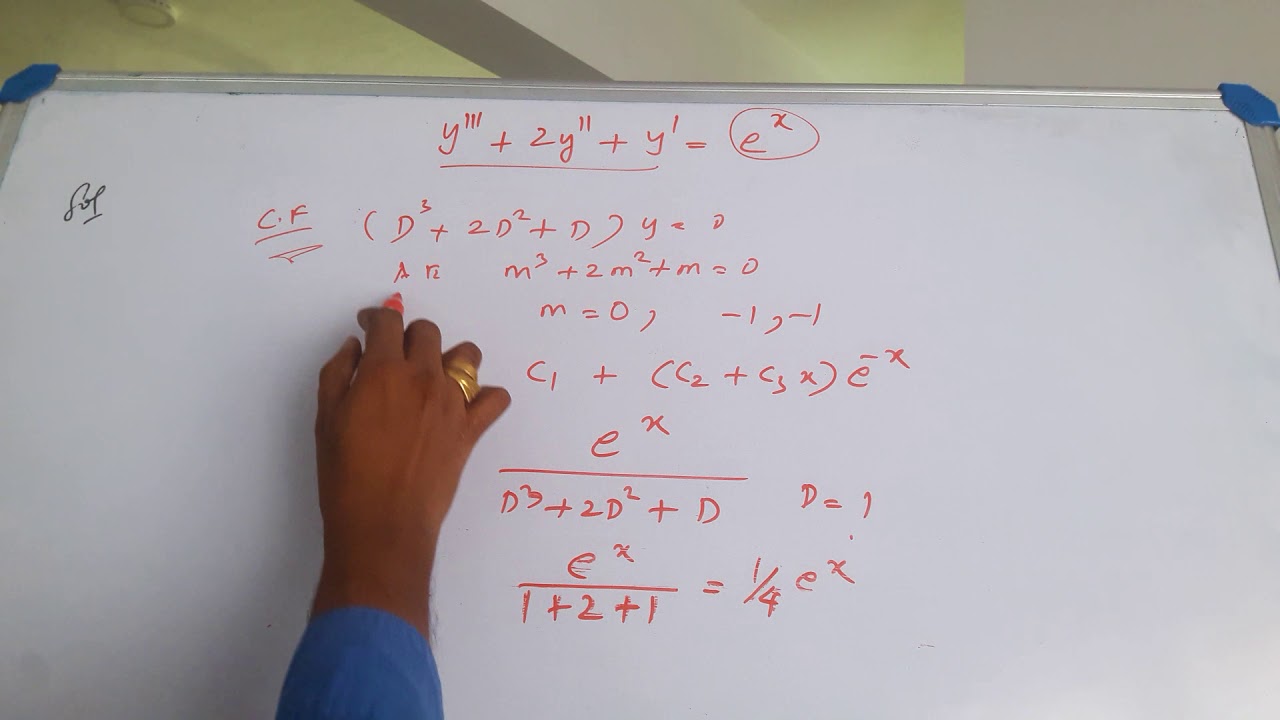 y''' + 2y'' + y' = e^x
Sol
C.F (D³ + 2D² + D) y = 0
A E m³ + 2m² + m = 0
m = 0, -1, -1
C₁ + (C₂ + C₃ x) e^-x
e^x
D³ + 2D² + D D = 1
e^x
1 + 2 + 1 = 1/4 e^x